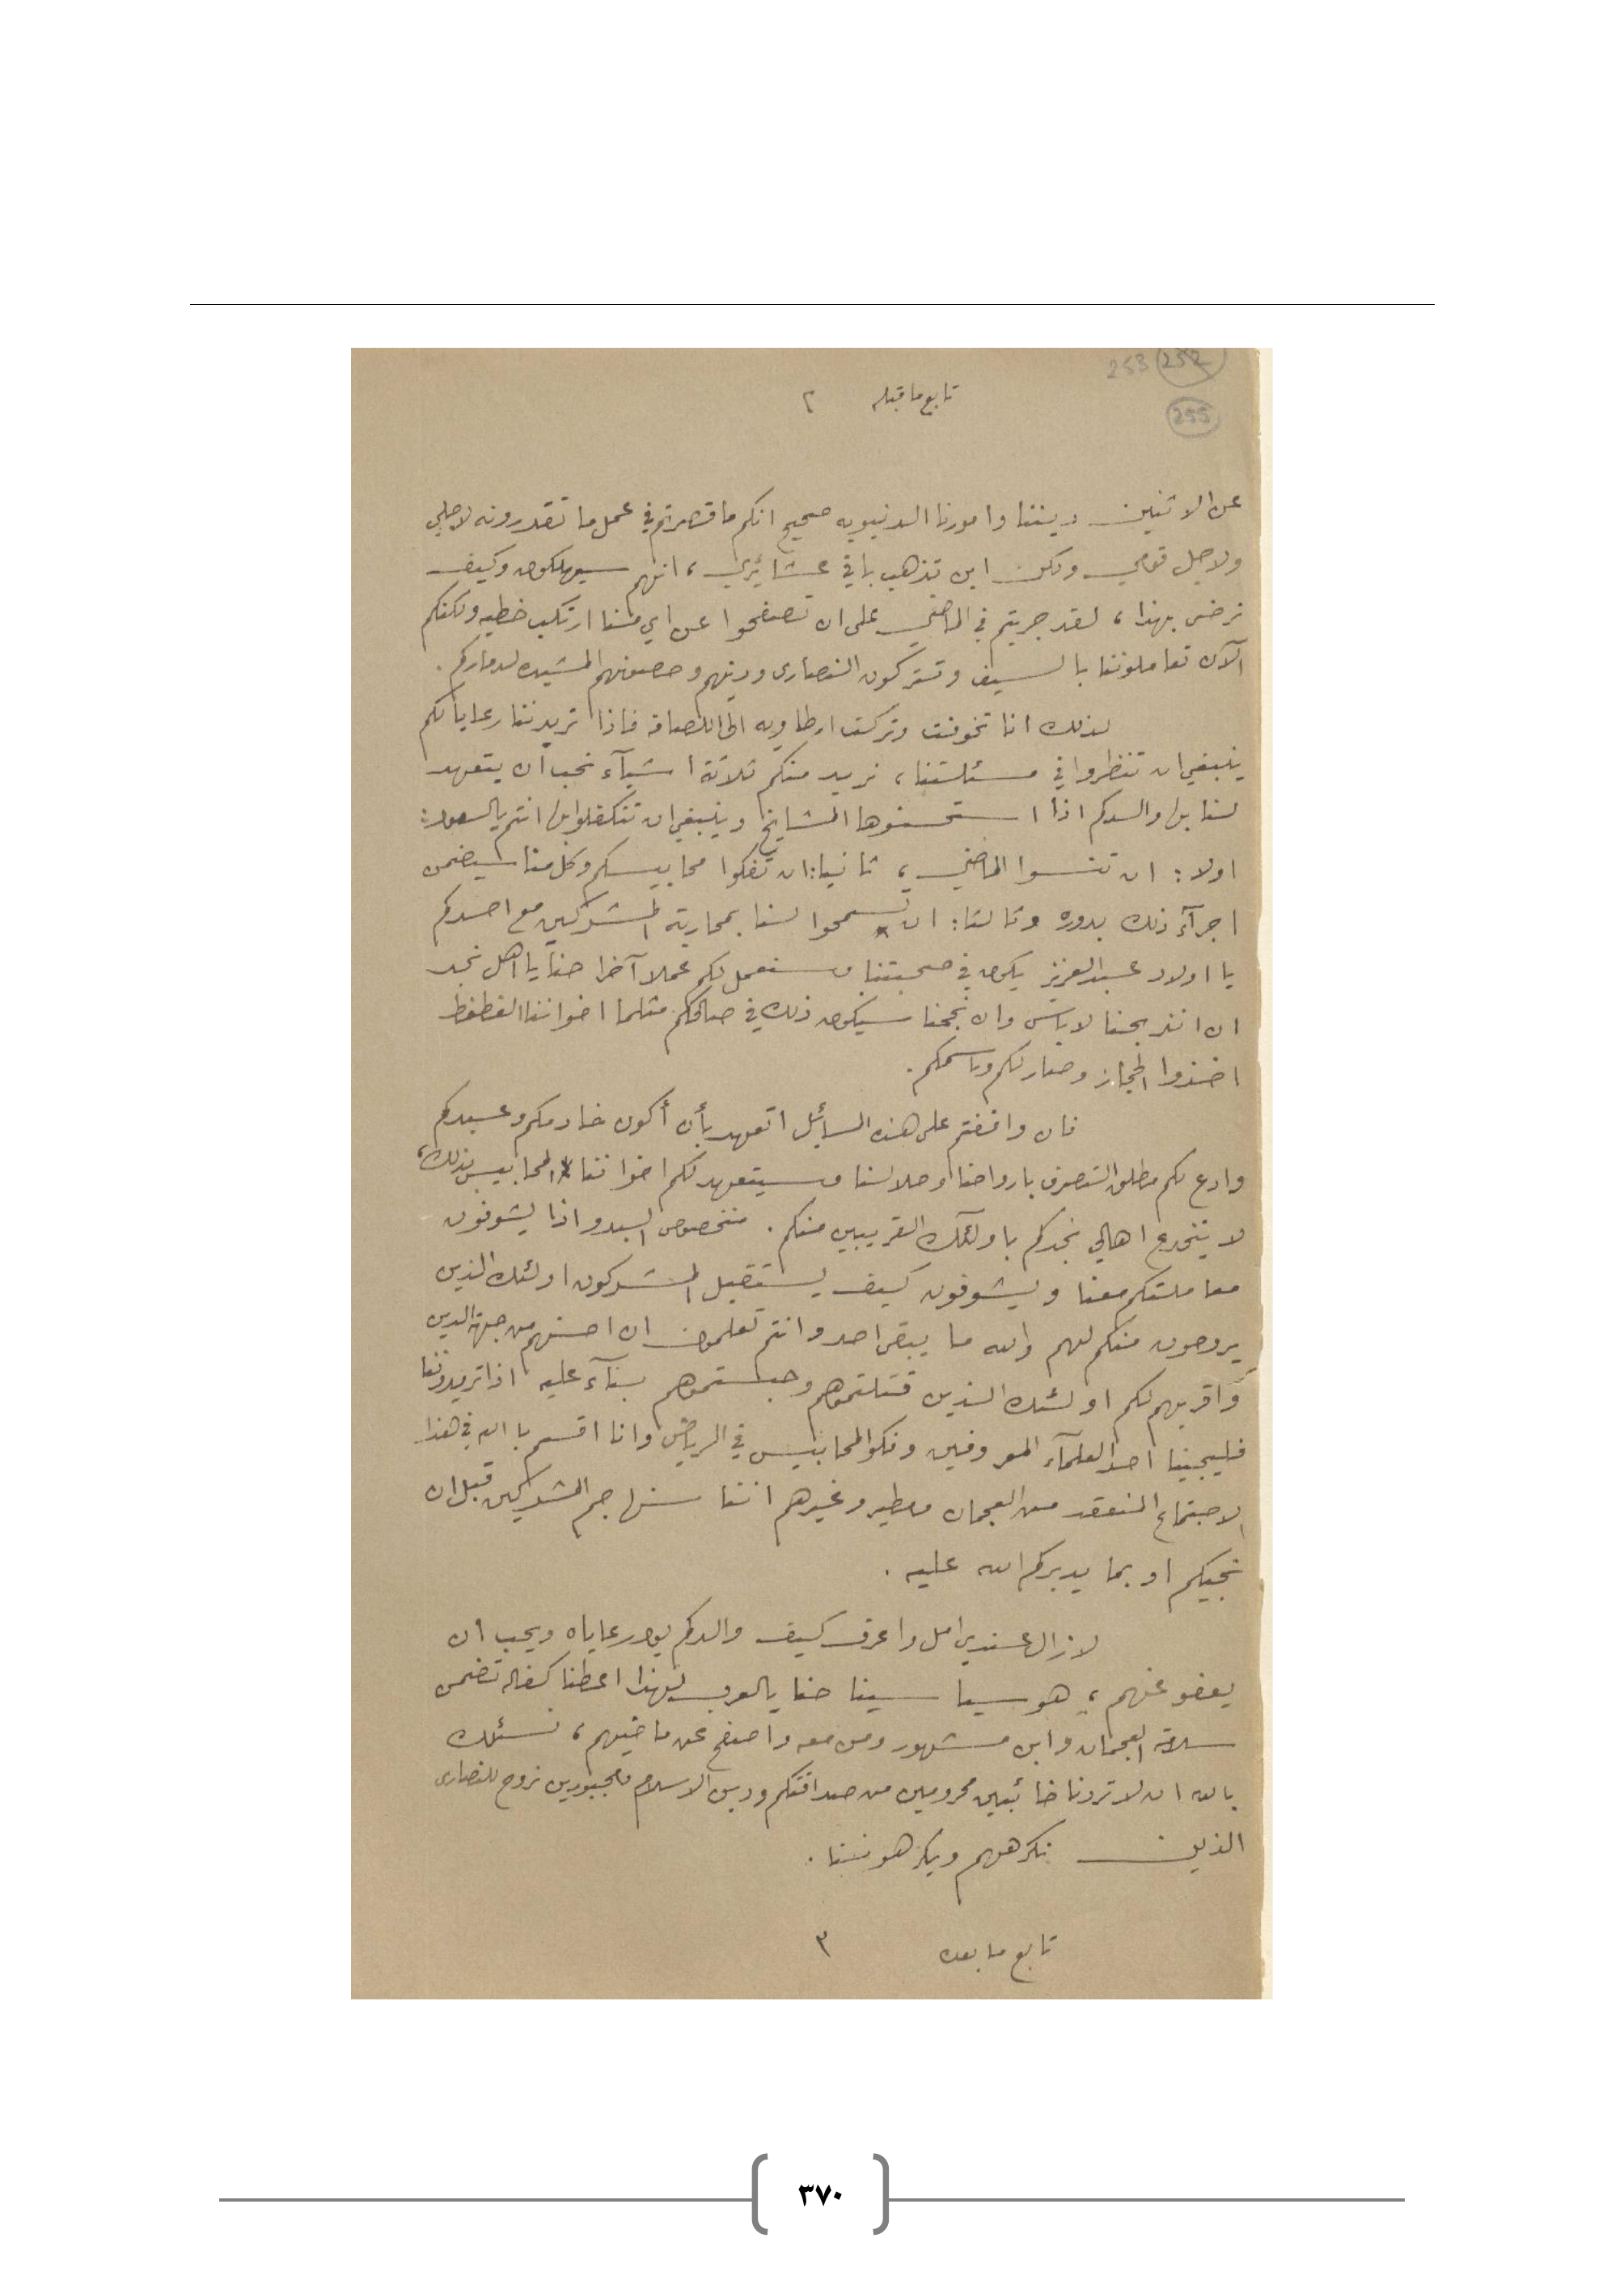 253 252
255
تابع ما قبله ٢
عن الاثنين ديننا وامورنا الدنيويه صحيح انكم ما قصرتم في عمل ما تقدرونه لاجلي
ولاجل قومي ولكن اين تذهب باقي عشائري، انهم سيهلكون وكيف
نرضى بهذا، لقد جريتم في الماضي على ان تصفحوا عن اي منا ارتكب خطيه ولكنكم
الآن تعاملوننا بالسيف وتتركون النصارى ودينهم وحصونهم المشيده لدماركم.
لذلك انا تخوفت وتركت ارطاويه الى اللصافه فاذا تريدننا رعاياكم
ينبغي ان تنظروا في مسئلتنا، نريد منكم ثلاثة اشيآء نحب ان يتعهد
لنا بها والدكم اذا استحسنوها المشايخ وينبغي ان تتكفلوا بها انتم يالسعود:
اولا: ان تنسوا الماضي، ثانيا: ان تفكوا محابيسكم وكل منا سيضمن
اجرآء ذلك بدوره وثالثا: ان تسمحوا لنا بمحاربة المشركين مع احدكم
يا اولاد عبدالعزيز يكون في صحبتنا وسنعمل لكم عملا آخرا حنا يا اهل نجد
ان انذبحنا لا باس وان نجحنا سيكون ذلك في صالحكم مثلما اخواننا الغطغط
اخذوا الحجاز وصار لكم وباسمكم.
فان وافقتم على هذه المسايل اتعهد بأن أكون خادمكم وعبدكم
وادع لكم مطلق التصرف بارواحنا وحلالنا وسيتعهد لكم اخواننا المحابيس بذلك،
لا ينخدع اهالي نجدكم باولئك القريبين منكم. منخصوص البدو اذا يشوفون
معاملتكم معنا ويشوفون كيف يستقبل المشركون اولئك الذين
يروحون منكم لهم والله ما يبقى احد وانتم تعلمون ان احسنهم من جهة الدين
واقربهم لكم اولئك الذين قتلتموهم وحبستموهم بنآء عليه اذا تريدوننا
فليجينا احد العلمآء المعروفين وفكوا المحابيس في الرياض وانا اقسم بالله في هذا
الاجتماع المنعقد من العجمان ومطير وغيرهم اننا سنهاجم المشركين قبل ان
نجيكم او بما يدبركم الله عليه.
لازال عندي امل واعرف كيف والدكم يود رعاياه ويحب ان
يعفو عنهم، هو سيا سينا حنا يالعرب لهذا اعطنا كفاله تضمن
سلامة العجمان وابن مشهور ومن معه واصفح عن ماضيهم، نسئلك
بالله ان لا تردنا خائبين محرومين من صداقتكم ودين الاسلام ومجبورين نروح للنصارى
الذين نكرههم ويكرهوننا.
تابع ما بعده ٣
٣٧٠